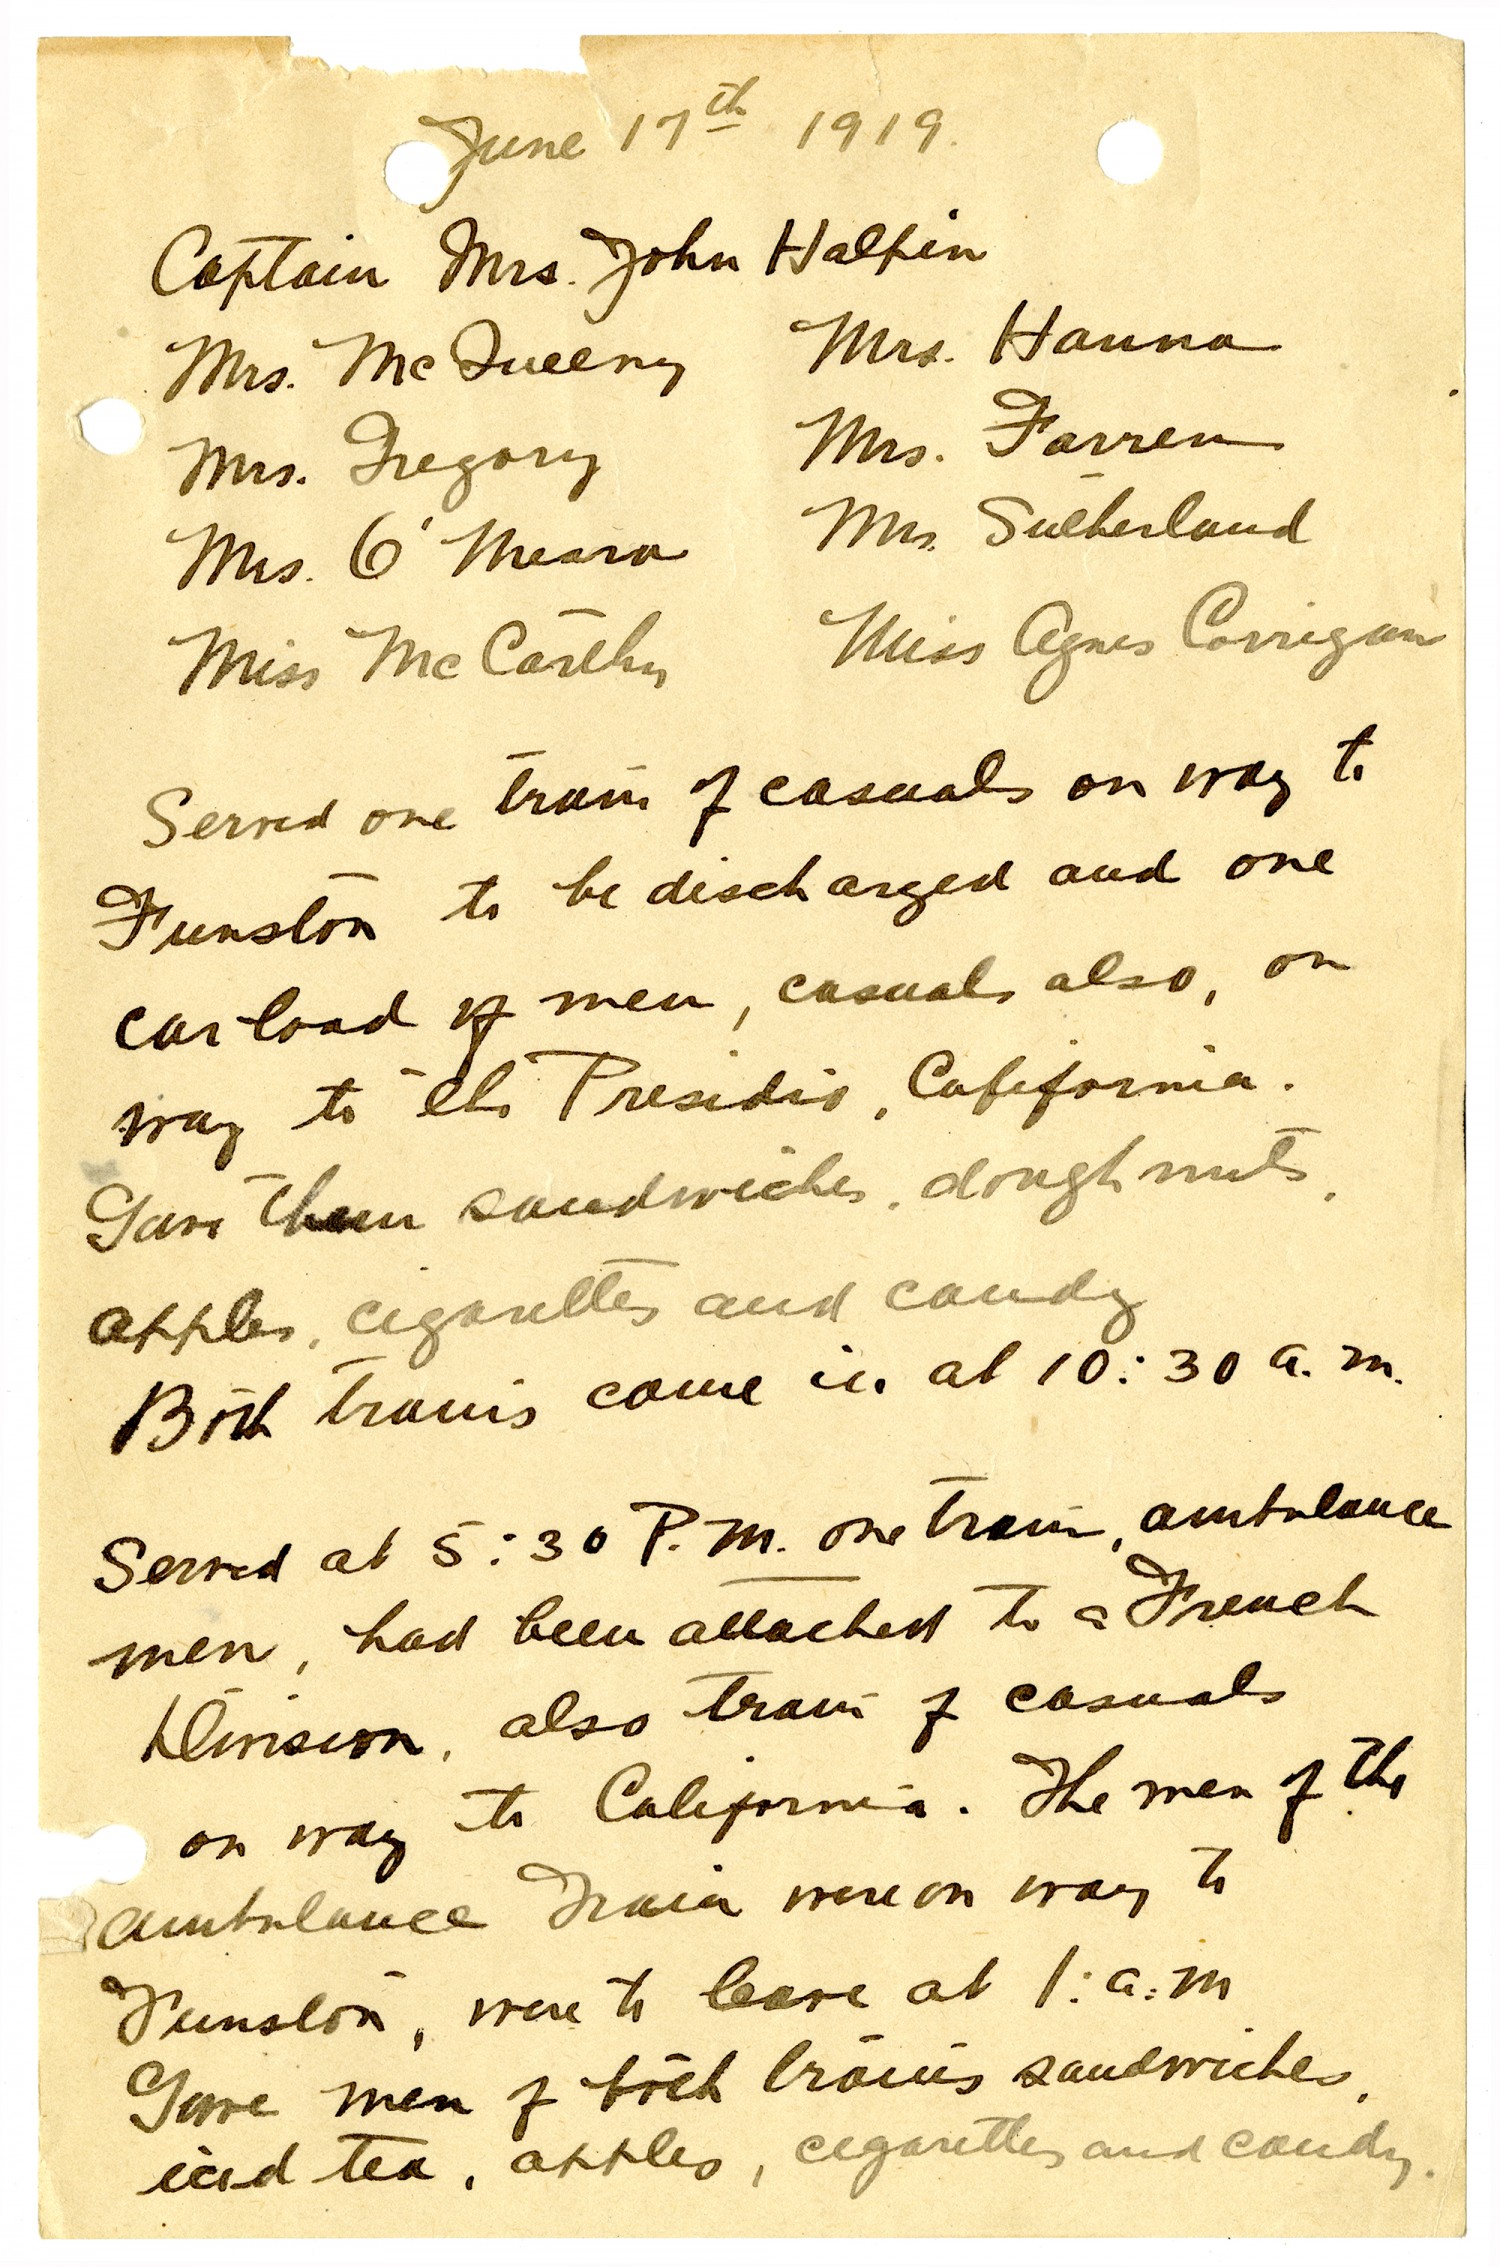 June 17th 1919.
Captain Mrs. John Halpin
Mrs. McQueeny Mrs. Hanna
Mrs. Gregory Mrs. Farren
Mrs. O'Meara Mrs. Sutherland
Miss McCarthy Miss Agnes Corrigan
Served one train of casuals on way to
Funston to be discharged and one
carload of men, casuals also, on
way to the Presidio, California.
Gave them sandwiches, doughnuts,
apples, cigarettes and candy
Both trains came in at 10:30 a.m.
Served at 5:30 P.M. one train, ambulance
men, had been attached to a French
Division, also train of casuals
on way to California. The men of the
ambulance train were on way to
Funston, were to leave at 1: a.m
Gave men of both trains sandwiches,
iced tea, apples, cigarettes and candy.